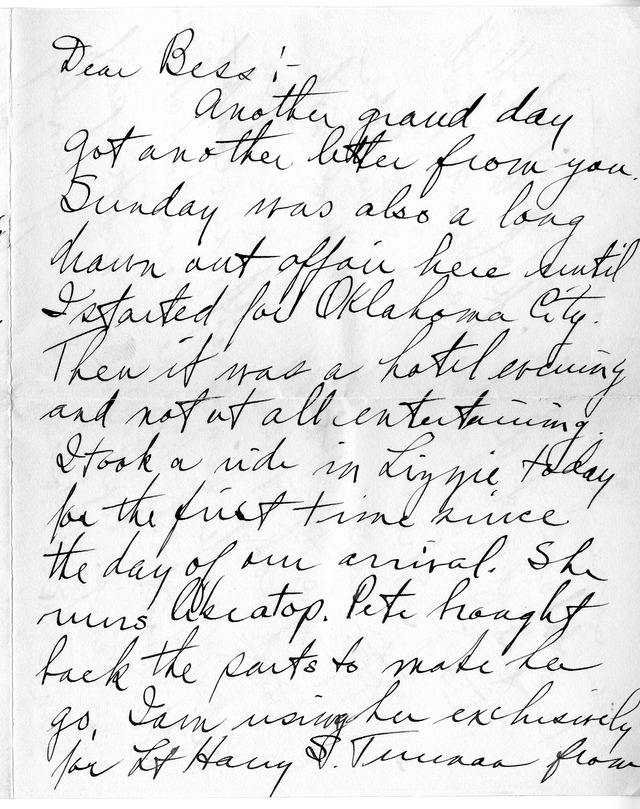 Dear Bess:-
Another grand day
got another letter from you.
Sunday was also a long
drawn out affair here until
I started for Oklahoma City.
Then it was a hotel evening
and not at all entertaining.
I took a ride in Lizzie today
for the first time since
the day of our arrival. She
runs like a top. Pete brought
back the parts to make her
go. I am using her exclusively
for Lt Harry S. Truman from